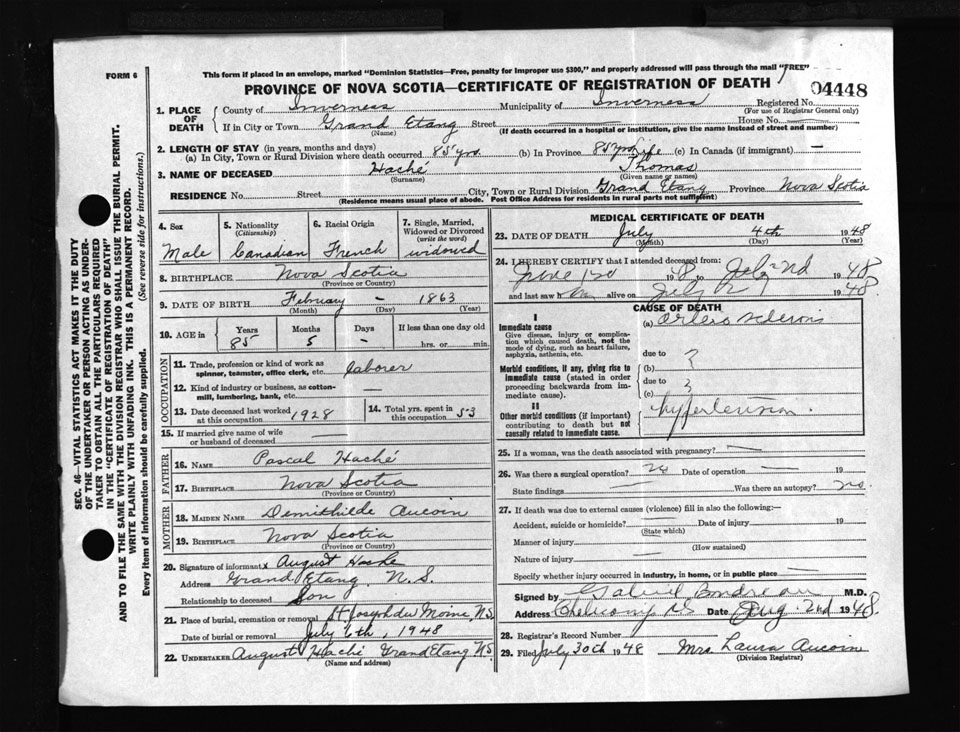 FORM 6
This form if placed in an envelope, marked "Dominion Statistics—Free, penalty for improper use $300," and properly addressed will pass through the mail "FREE"
PROVINCE OF NOVA SCOTIA—CERTIFICATE OF REGISTRATION OF DEATH
04448
1. PLACE OF DEATH
County of Inverness Municipality of Inverness Registered No.
(For use of Registrar General only)
If in City or Town Grand Etang Street House No.
(Name) (If death occurred in a hospital or institution, give the name instead of street and number)
2. LENGTH OF STAY (in years, months and days)
(a) In City, Town or Rural Division where death occurred 85 yrs. (b) In Province 85 yrs Life (c) In Canada (if immigrant) —
3. NAME OF DECEASED Haché Thomas
(Surname) (Given name or names)
RESIDENCE No. Street City, Town or Rural Division Grand Etang Province Nova Scotia
(Residence means usual place of abode. Post Office Address for residents in rural parts not sufficient)
SEC. 46—VITAL STATISTICS ACT MAKES IT THE DUTY
OF THE UNDERTAKER OR PERSON ACTING AS UNDERTAKER
TO OBTAIN ALL THE PARTICULARS REQUIRED
IN THE "CERTIFICATE OF REGISTRATION OF DEATH"
AND TO FILE THE SAME WITH THE DIVISION REGISTRAR WHO SHALL ISSUE THE BURIAL PERMIT.
WRITE PLAINLY WITH UNFADING INK. THIS IS A PERMANENT RECORD.
Every item of information should be carefully supplied. (See reverse side for instructions.)
4. Sex
Male
5. Nationality
(Citizenship)
Canadian
6. Racial Origin
French
7. Single, Married, Widowed or Divorced
(write the word)
widowed
8. BIRTHPLACE Nova Scotia
(Province or Country)
9. DATE OF BIRTH February — 1863
(Month) (Day) (Year)
10. AGE in Years Months Days If less than one day old
85 5 — hrs. or min.
OCCUPATION
11. Trade, profession or kind of work as Laborer
spinner, teamster, office clerk, etc.
12. Kind of industry or business, as cotton-
mill, lumbering, bank, etc. —
13. Date deceased last worked at this occupation 1928
14. Total yrs. spent in this occupation 53
15. If married give name of wife
or husband of deceased —
FATHER
16. NAME Pascal Haché
17. BIRTHPLACE Nova Scotia
(Province or Country)
MOTHER
18. MAIDEN NAME Demithilde Aucoin
19. BIRTHPLACE Nova Scotia
(Province or Country)
20. Signature of informant x August Hache
Address Grand Etang. N.S.
Relationship to deceased Son
21. Place of burial, cremation or removal St Joseph du Moine, N.S.
Date of burial or removal July 6th, 1948
22. UNDERTAKER August Haché Grand Etang N.S.
(Name and address)
MEDICAL CERTIFICATE OF DEATH
23. DATE OF DEATH July 4th 1948
(Month) (Day) (Year)
24. I HEREBY CERTIFY that I attended deceased from:
June 1948 to July 2nd 1948
and last saw him alive on July 2 1948.
CAUSE OF DEATH
I
Immediate cause
Give disease, injury or complication which caused death, not the mode of dying, such as heart failure, asphyxia, asthenia, etc.
(a) Arterio sclerosis
due to ?
Morbid conditions, if any, giving rise to immediate cause (stated in order proceeding backwards from immediate cause)
(b)
due to ?
(c)
II
Other morbid conditions (if important) contributing to death but not causally related to immediate cause.
hypertension
25. If a woman, was the death associated with pregnancy? —
26. Was there a surgical operation? no Date of operation — 19
State findings — Was there an autopsy? no.
27. If death was due to external causes (violence) fill in also the following:—
Accident, suicide or homicide? Date of injury 19
(State which)
Manner of injury
(How sustained)
Nature of injury
Specify whether injury occurred in industry, in home, or in public place —
Signed by Gabriel Boudreau M.D.
Address Cheticamp NS Date Aug. 2nd 1948.
28. Registrar's Record Number
29. Filed July 30th 1948 Mrs Laura Aucoin
(Division Registrar)